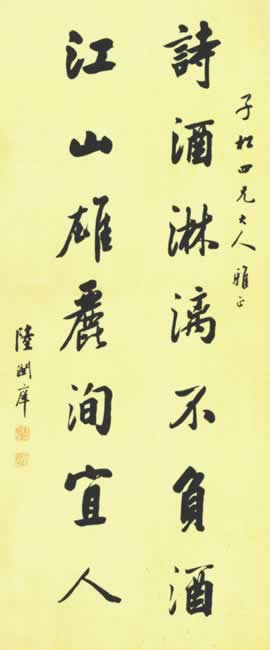 子松四兄大人雅正
詩酒淋漓不負酒
江山雄麗洵宜人
陸潤庠